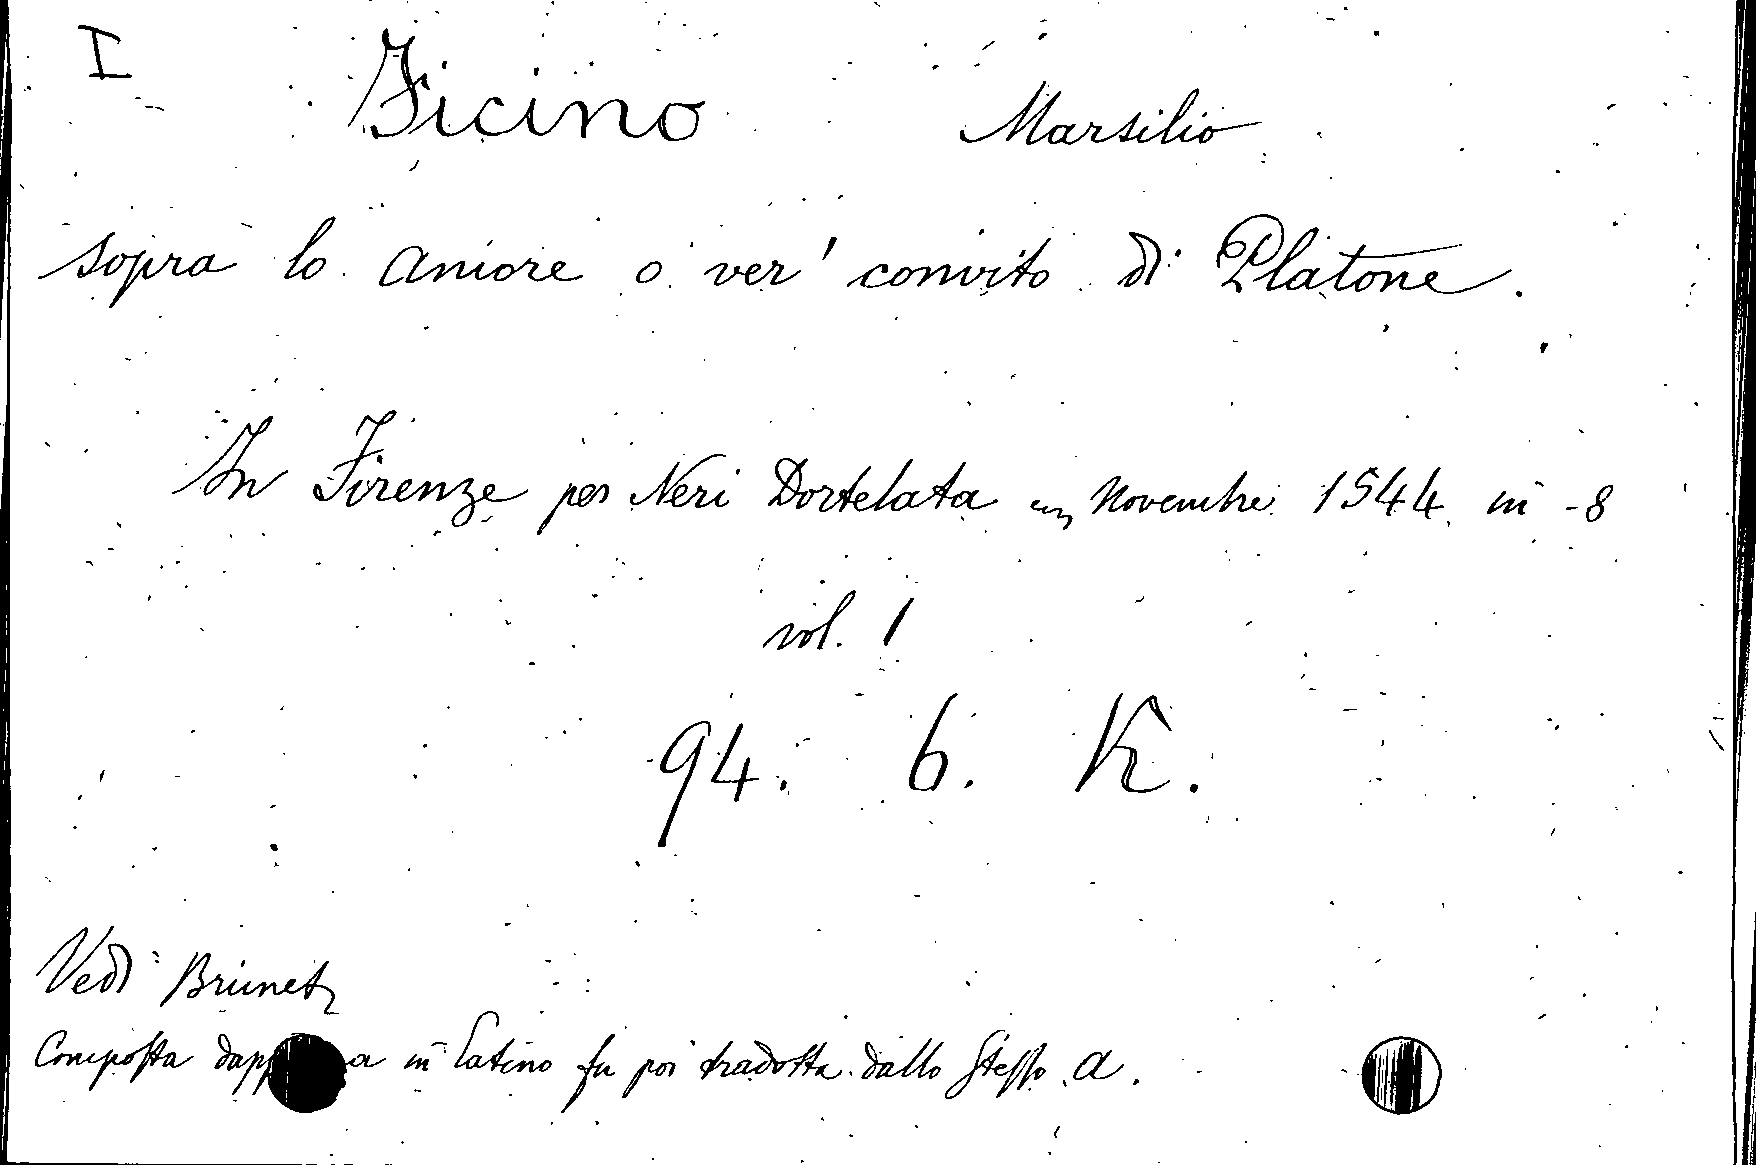 I Ficino Marsilio
sopra lo amore o ver' convito di Platone.
In Firenze per Neri Dortelata Novembre 1544 in -8
vol. 1
94. 6. K.
Vedi Brunet
Composta in latino fu poi tradotta dallo stesso A.